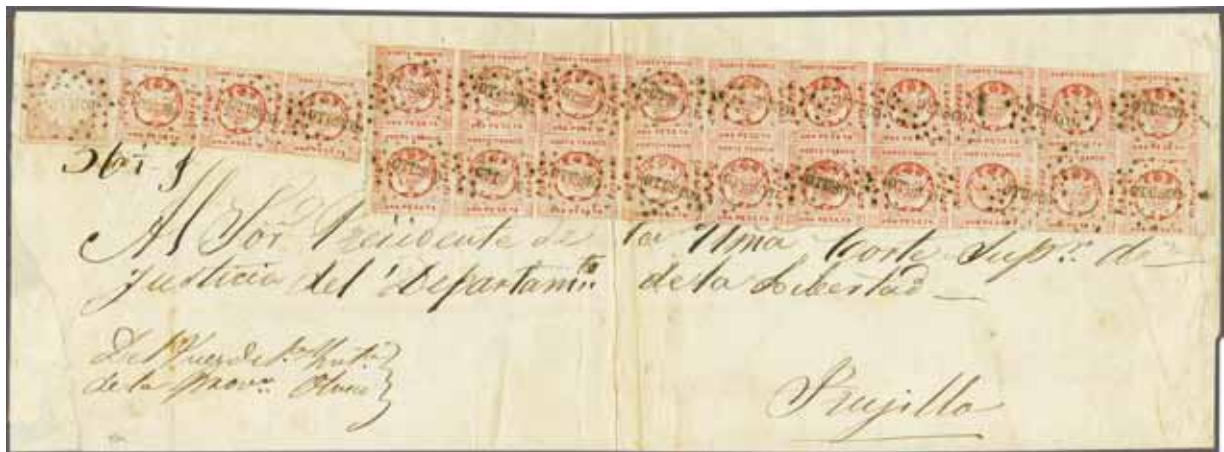 PORTO FRANCO
UNA PESETA
OTUSCO
Al Sor Presidente de la Ilma Corte Supr. de
Justicia del Departamto de la Libertad
Del Juez de
de la Prova Otusco
Trujillo